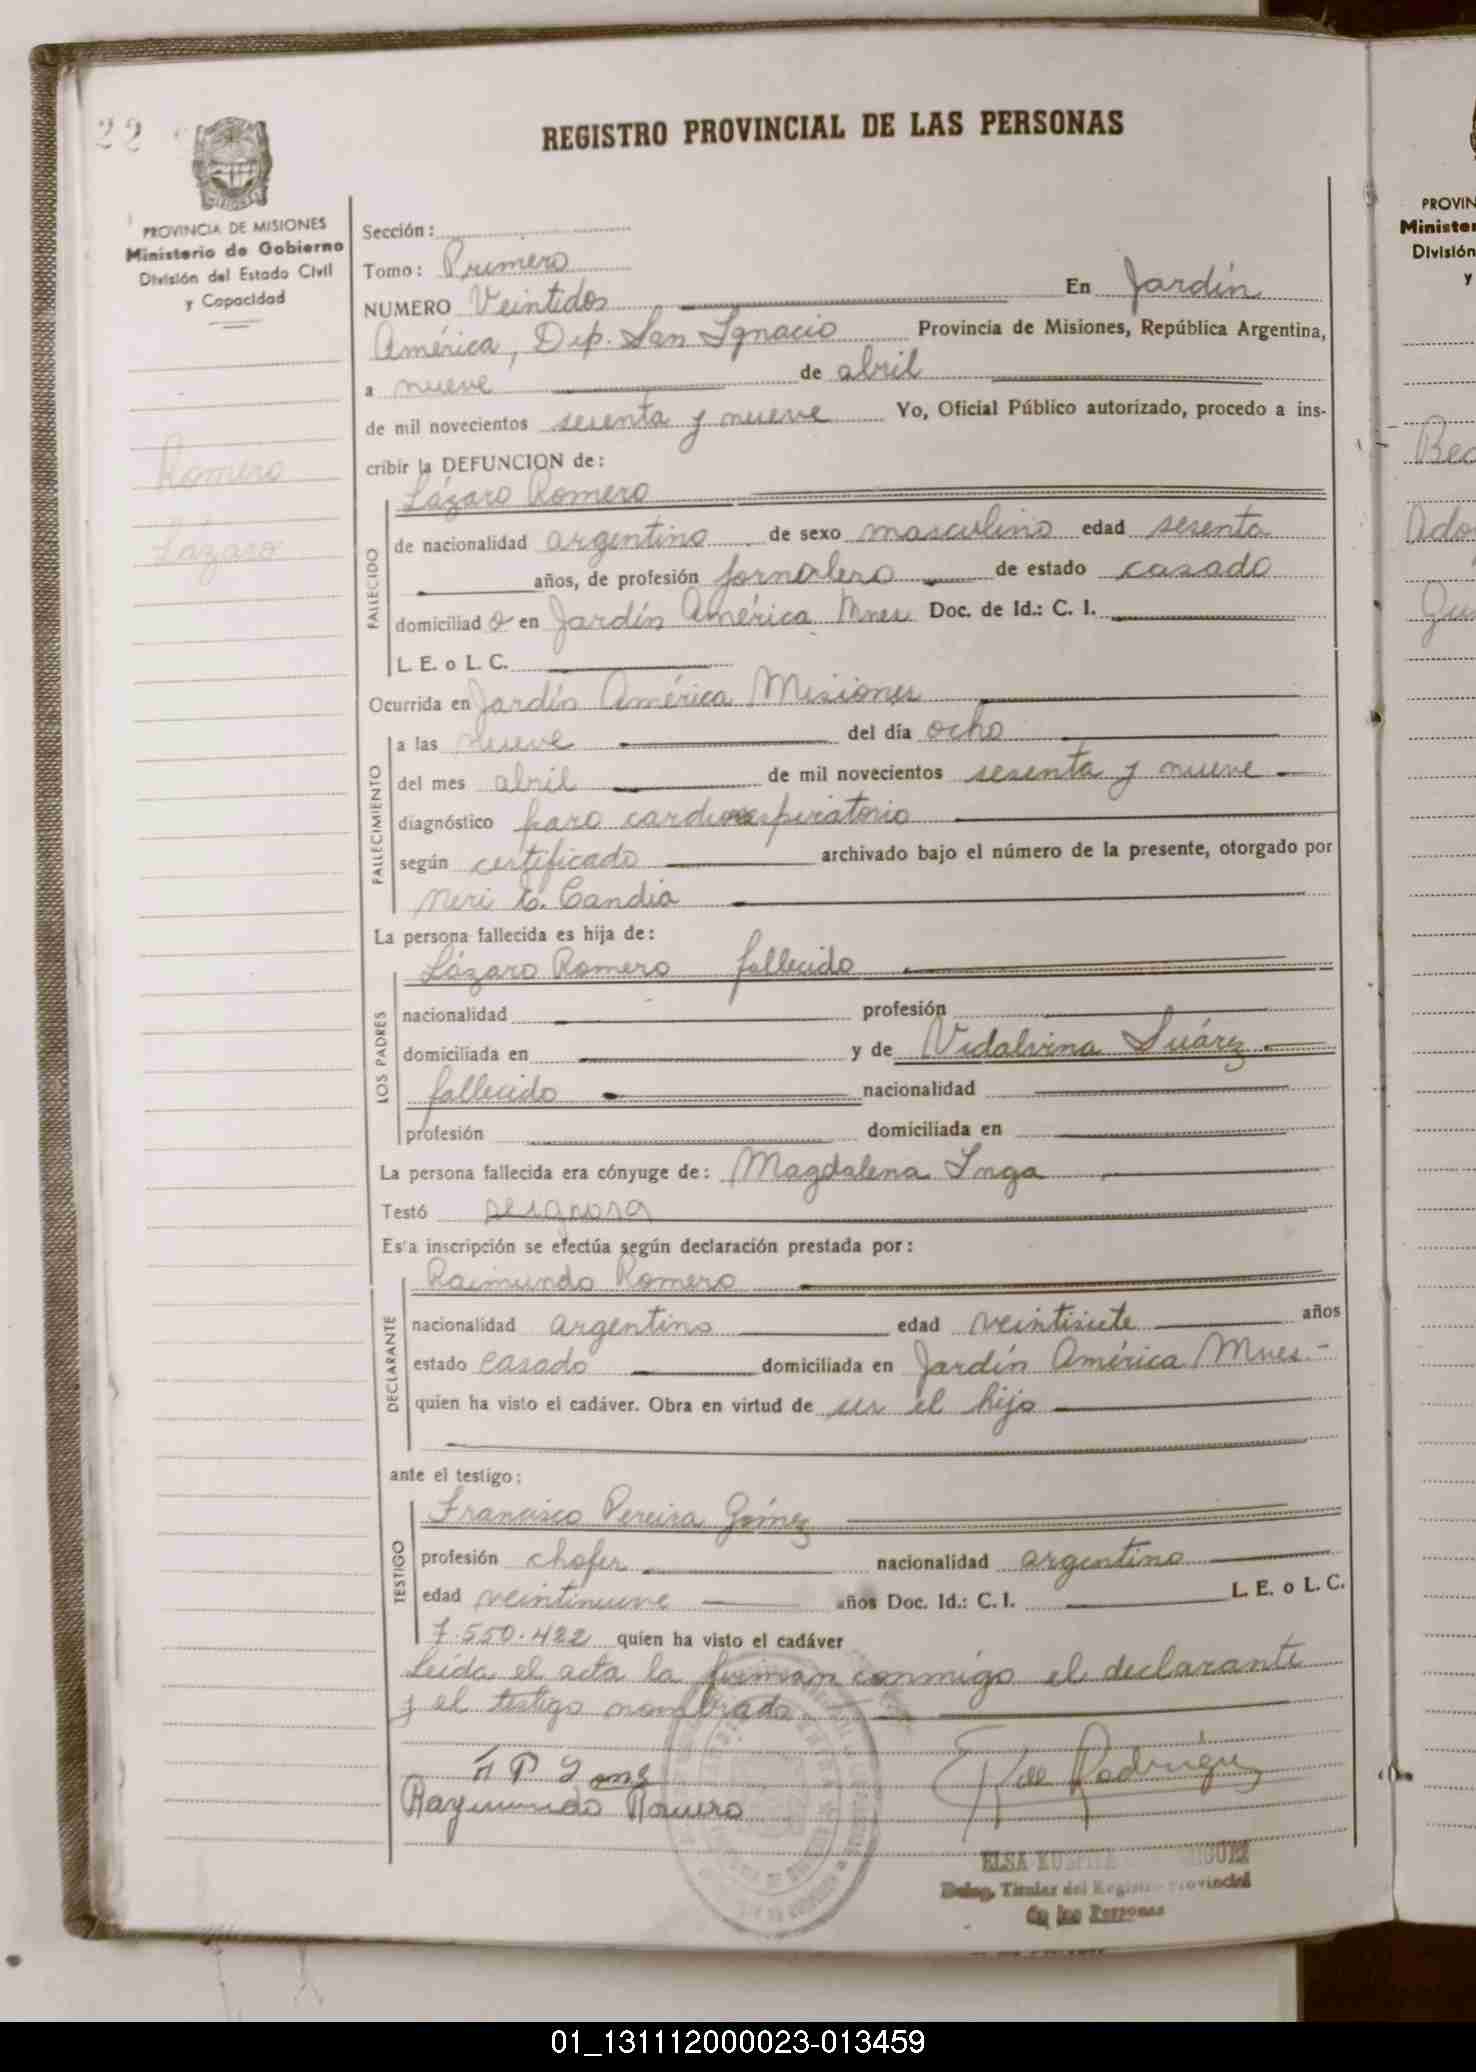 22
REGISTRO PROVINCIAL DE LAS PERSONAS
PROVINCIA DE MISIONES
Ministerio de Gobierno
División del Estado Civil
y Capacidad
Romero
Lázaro
Sección:
Tomo: Primero
NUMERO Veintidos En Jardín
América, Dep. San Ignacio Provincia de Misiones, República Argentina,
a nueve de abril
de mil novecientos sesenta y nueve Yo, Oficial Público autorizado, procedo a ins-
cribir la DEFUNCION de:
FALLECIDO
Lázaro Romero
de nacionalidad argentino de sexo masculino edad sesenta
años, de profesión jornalero de estado casado
domiciliad o en Jardín América Mnes Doc. de Id.: C. I.
L. E. o L. C.
Ocurrida en Jardín América Misiones
FALLECIMIENTO
a las nueve del día ocho
del mes abril de mil novecientos sesenta y nueve
diagnóstico paro cardiorespiratorio
según certificado archivado bajo el número de la presente, otorgado por
Neri C. Candia
La persona fallecida es hija de:
LOS PADRES
Lázaro Romero fallecido
nacionalidad profesión
domiciliada en y de Vidalvina Suárez
fallecido nacionalidad
profesión domiciliada en
La persona fallecida era cónyuge de: Magdalena Inga
Testó
Esta inscripción se efectúa según declaración prestada por:
DECLARANTE
Raimundo Romero
nacionalidad argentino edad veintisiete años
estado casado domiciliada en Jardín América Mnes.-
quien ha visto el cadáver. Obra en virtud de ser el hijo
ante el testigo:
TESTIGO
Francisco Pereira Gómez
profesión chofer nacionalidad argentino
edad veintinueve años Doc. Id.: C. I. L. E. o L. C.
7.550.422 quien ha visto el cadáver
Leída el acta la firman conmigo el declarante
y el testigo nombrado
Raymundo Romero
Rodriguez
ELSA
Deleg. Titular del Registro Provincial
de las Personas
PROVIN
Minister
División
y
Ado
01_131112000023-013459